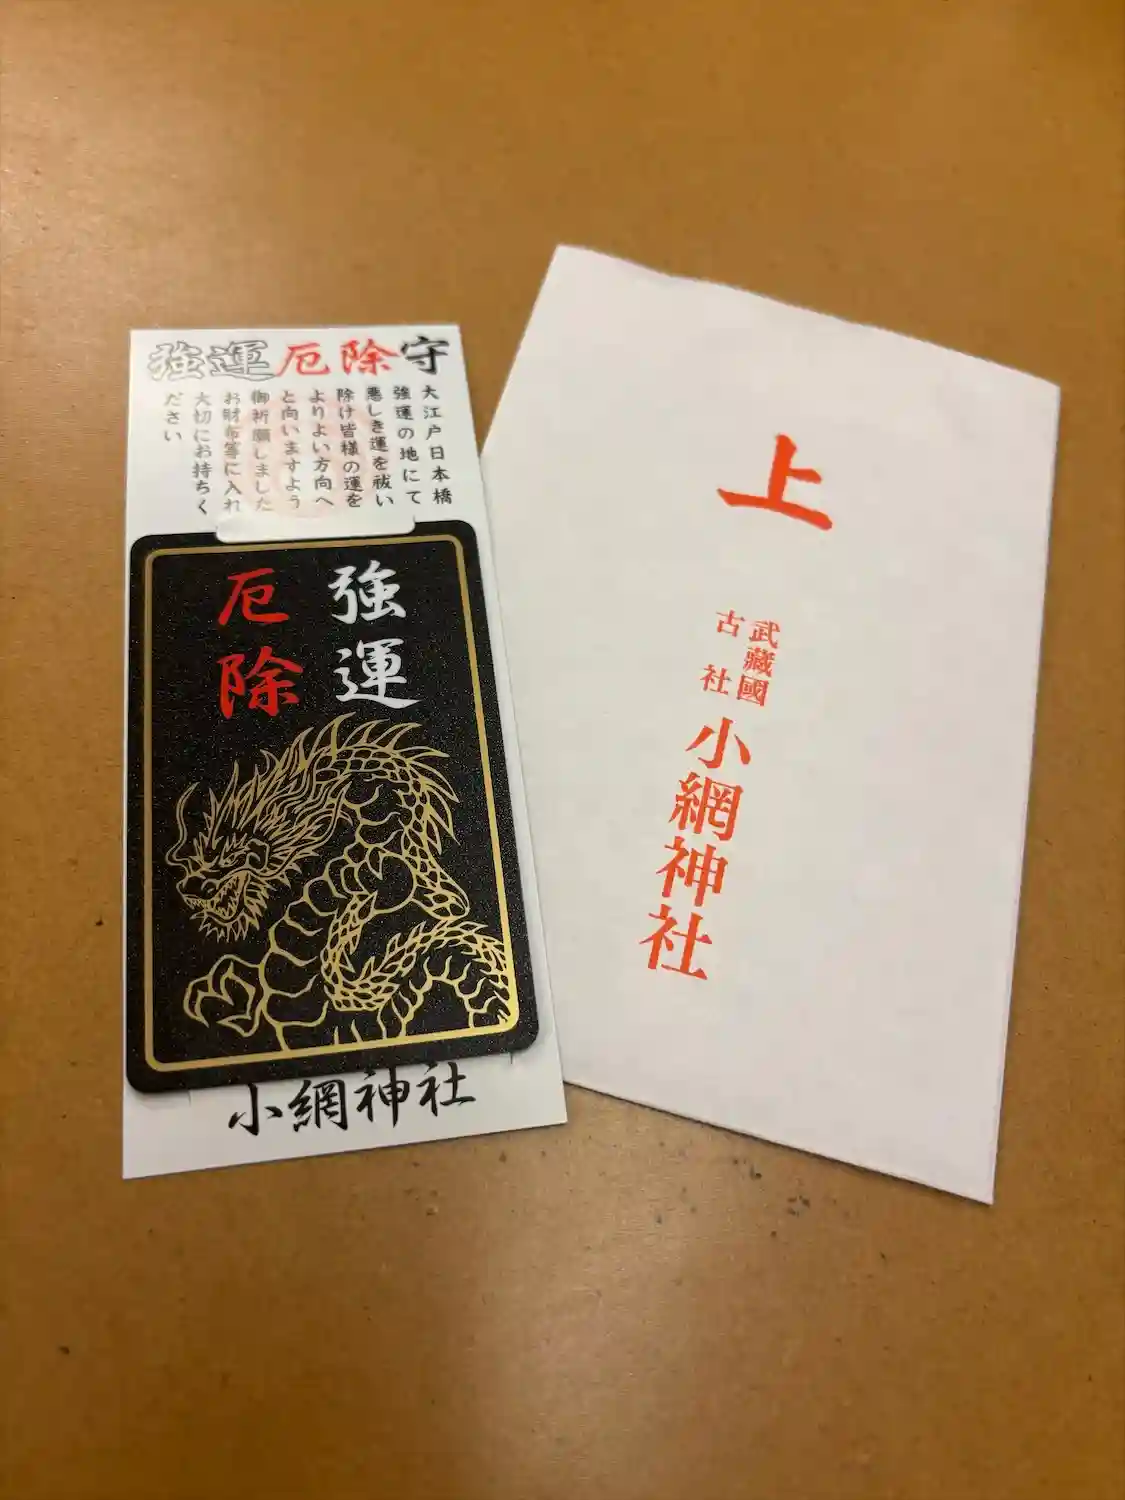 強運厄除守
大江戸日本橋
強運の地にて
悪しき運を祓い
除け皆様の運を
よりよい方向へ
と向いますよう
御祈願しました
お財布等に入れ
大切にお持ちく
ださい
強運
厄除
小網神社
上
武藏國
古社
小網神社